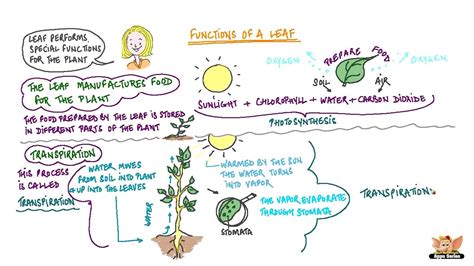 FUNCTIONS OF A LEAF
LEAF PERFORMS
SPECIAL FUNCTIONS
FOR THE PLANT
OXYGEN
PREPARE FOOD
OXYGEN
SOIL
AIR
THE LEAF MANUFACTURES FOOD
FOR THE PLANT
SUNLIGHT + CHLOROPHYLL + WATER + CARBON DIOXIDE
THE FOOD PREPARED BY THE LEAF IS STORED
IN DIFFERENT PARTS OF THE PLANT
PHOTOSYNTHESIS
TRANSPIRATION
THIS PROCESS
IS CALLED
TRANSPIRATION
WATER MOVES
FROM SOIL INTO PLANT
UP INTO THE LEAVES
WATER
WARMED BY THE SUN
THE WATER TURNS
INTO VAPOR
THE VAPOR EVAPORATE
THROUGH STOMATA
STOMATA
TRANSPIRATION
Appu Series